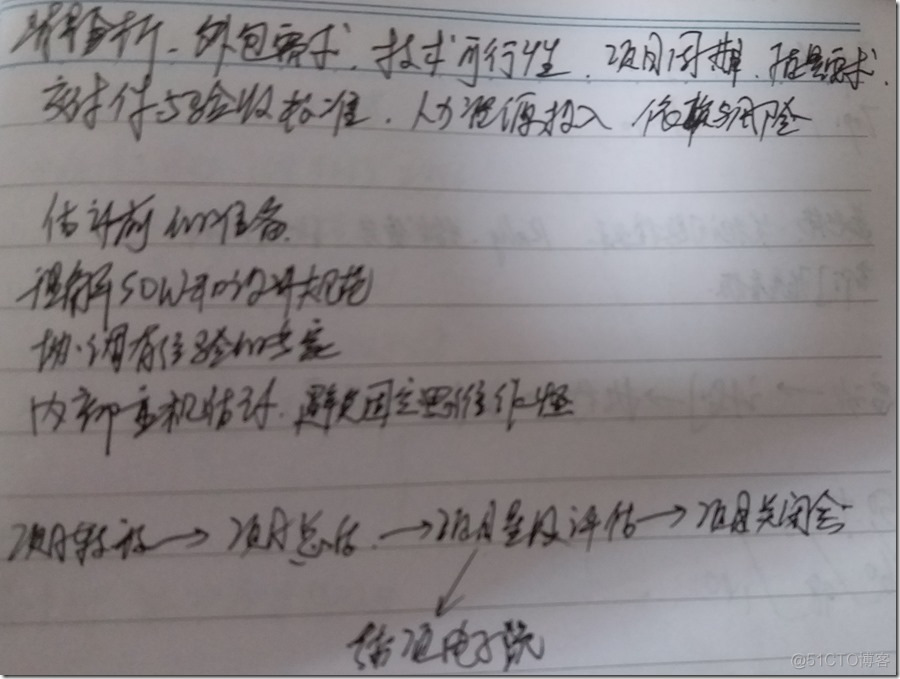 外包需求、技术可行性、项目周期、质量要求、
交付件与验收标准、人力资源投入 依赖与风险
估计前的准备
理解SOW和设计规范
协调有经验的专家
内部主机估计、避免固定思维作怪
项目移交→项目总结→项目 评估→项目关闭会
结项电子流
@51CTO博客